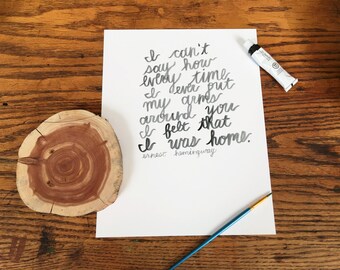 I can't
say how
every time
I ever put
my arms
around you
I felt that
I was home.
ernest hemingway